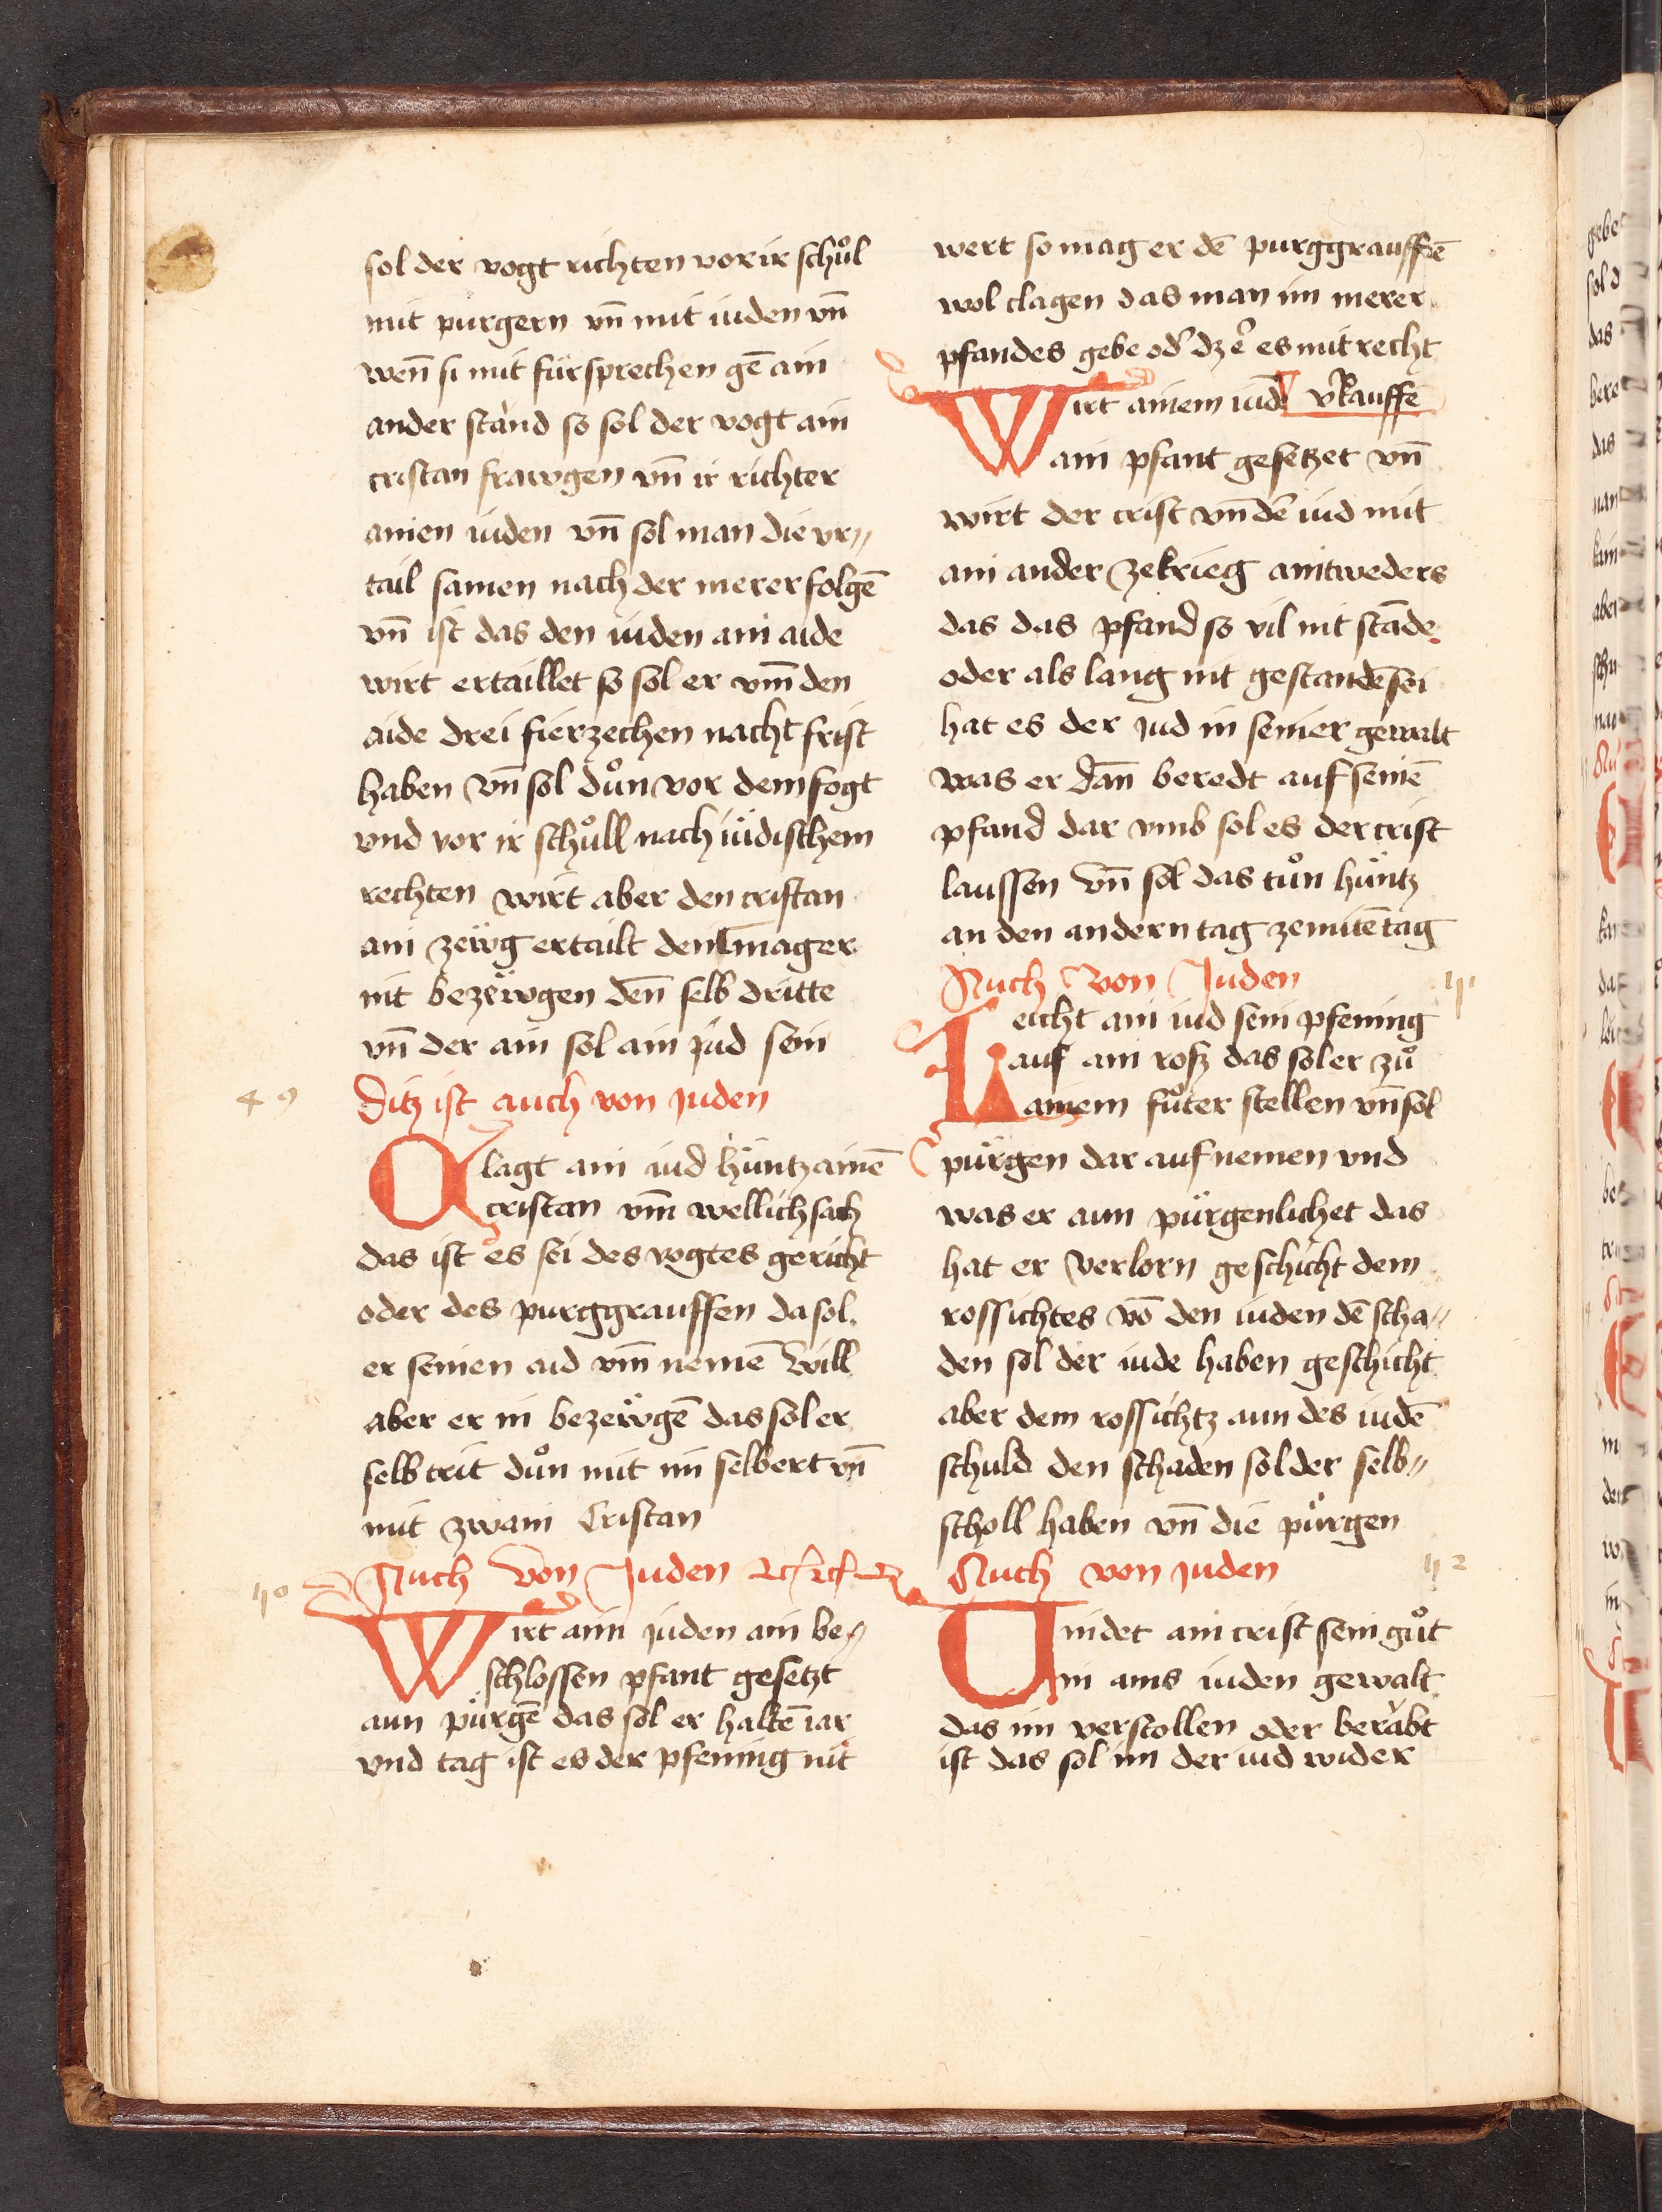 sol der vogt richten vor ir schůl
mit purgern vn̄ mit iuden vn̄
wen̄ si mit fürsprechen gē ain
ander stand so sol der vogt ain
cristan frawgen vn̄ ir richter
ainen iuden vn̄ sol man die vr〃
tail samen nach der merer folgē
vn̄ ist das den iuden ain aide
wirt ertaillet so sol er vm̄ den
aide drei fierzechen nacht frist
haben vn̄ sol důn vor dem fogt
vnd vor ir schůll nach iüdischem
rechten wirt aber den cristan
ain zeẅg ertailt den mager
nit bezeẅgen den̄ selb dritte
vn̄ der ain sol ain jud sein
49
Ditz ist auch von juden
Clagt ain iud hüntz ainē
cristan vm̄ wellich sach
das ist es sei des vogtes gericht
oder des purggrauffen da sol
er seinen aid vm̄ nemē will
aber er in bezeẅgē das sol er
selb trit důn mit im selbert vn̄
mit zwain Cristan
50
Auch von Juden
Wirt aim juden ain be〃
schlossen pfant gesetzt
aun pürgē das sol er haltē iar
vnd tag ist es der pfening nit
wert so mag er dē purggrauffē
wol clagen das man im merer
pfandes gebe od̛ dz er es mit recht
v̛kauffe
Wirt ainem iudē
ain pfant gesetzet vn̄
wirt der crist vn̄ der iud mit
ain ander ze krieg aintweders
das das pfand so vil nit stāde
oder als lang nit gestandē sei
hat es der jud in seiner gewalt
was er dan̄ beredt auf seinē
pfand dar vmb sol es der crist
laussen vn̄ sol das tůn hüntz
an den andern tag ze mitētag
Auch von Juden
51
Leicht ain iud sein pfening
auf ain roß das sol er zů
ainem fůter stellen vn̄ sol
pürgen dar auf nemen vnd
was er aun pürgen lichet das
hat er verlorn geschicht dem
rossichtes vō den iuden dē scha〃
den sol der iude haben geschicht
aber dem rossichtz aun des iudē
schuld den schaden sol der selb〃
scholl haben vn̄ die pürgen
Auch von juden
52
Vindet ain crist sein gůt
in ains iuden gewalt
das im verstollen oder berabt
ist das sol im der iud wider